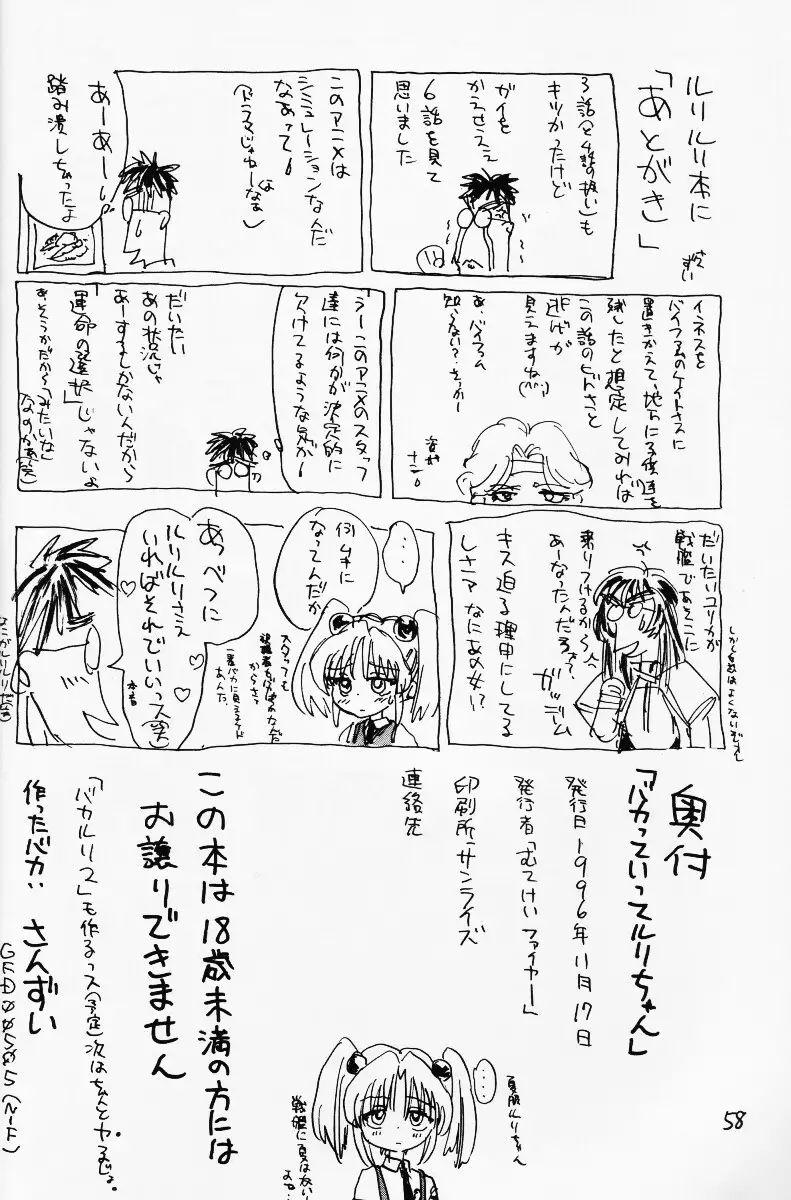 ルリルリ本に
「あとがき」
さんずい
3話と4話の扱いも
キツかったけど
ガイを
かえせうえぇ
6話を見て
思いました
このアニメは
シミュレーションなんだ
なあって
(ドラマじゃねーなぁ)
あーあー
踏み潰しちゃったよ
イネスを
バイファムのケイトさんに
置きかえて、地下に子供達を
残したと想定してみれば
この話のヒドさと
逃げが
見えますね
あ、バイファム
知らない?そっかー
うーこのアニメのスタッフ
達には何かが決定的に
欠けてるような気が
だいたい
あの状況じゃ
あーするしかないんだから
「運命の選択」じゃないよ
あ、そうかだから「みたいな」
なのかあ(笑)
だいたいユリカが
戦艦であそこに
乗りつけるから
あーなったんだろ??
ガッデーム
キス迫る理由にしてる
しさーア なにあの女!?
・・・
何ムキに
なってんだか
スタッフも
視聴者もバカばっかなんだ
からさっ
一番バカに見えるけど
あんた
あっべつに
ルリルリさえ
いればそれでいいっス(笑)
本音
奥付
「バカっていってルリちゃん」
発行日 1996年11月17日
発行者「むてけいファイヤー」
印刷所 サンライズ
連絡先
この本は18歳未満の方には
お譲りできません
「バカルリス」も作るっス(予定)次はちゃんとヤるじょ。
作ったバカ: さんずい
・・・
夏服ルリちゃん
戦艦に夏はない
58